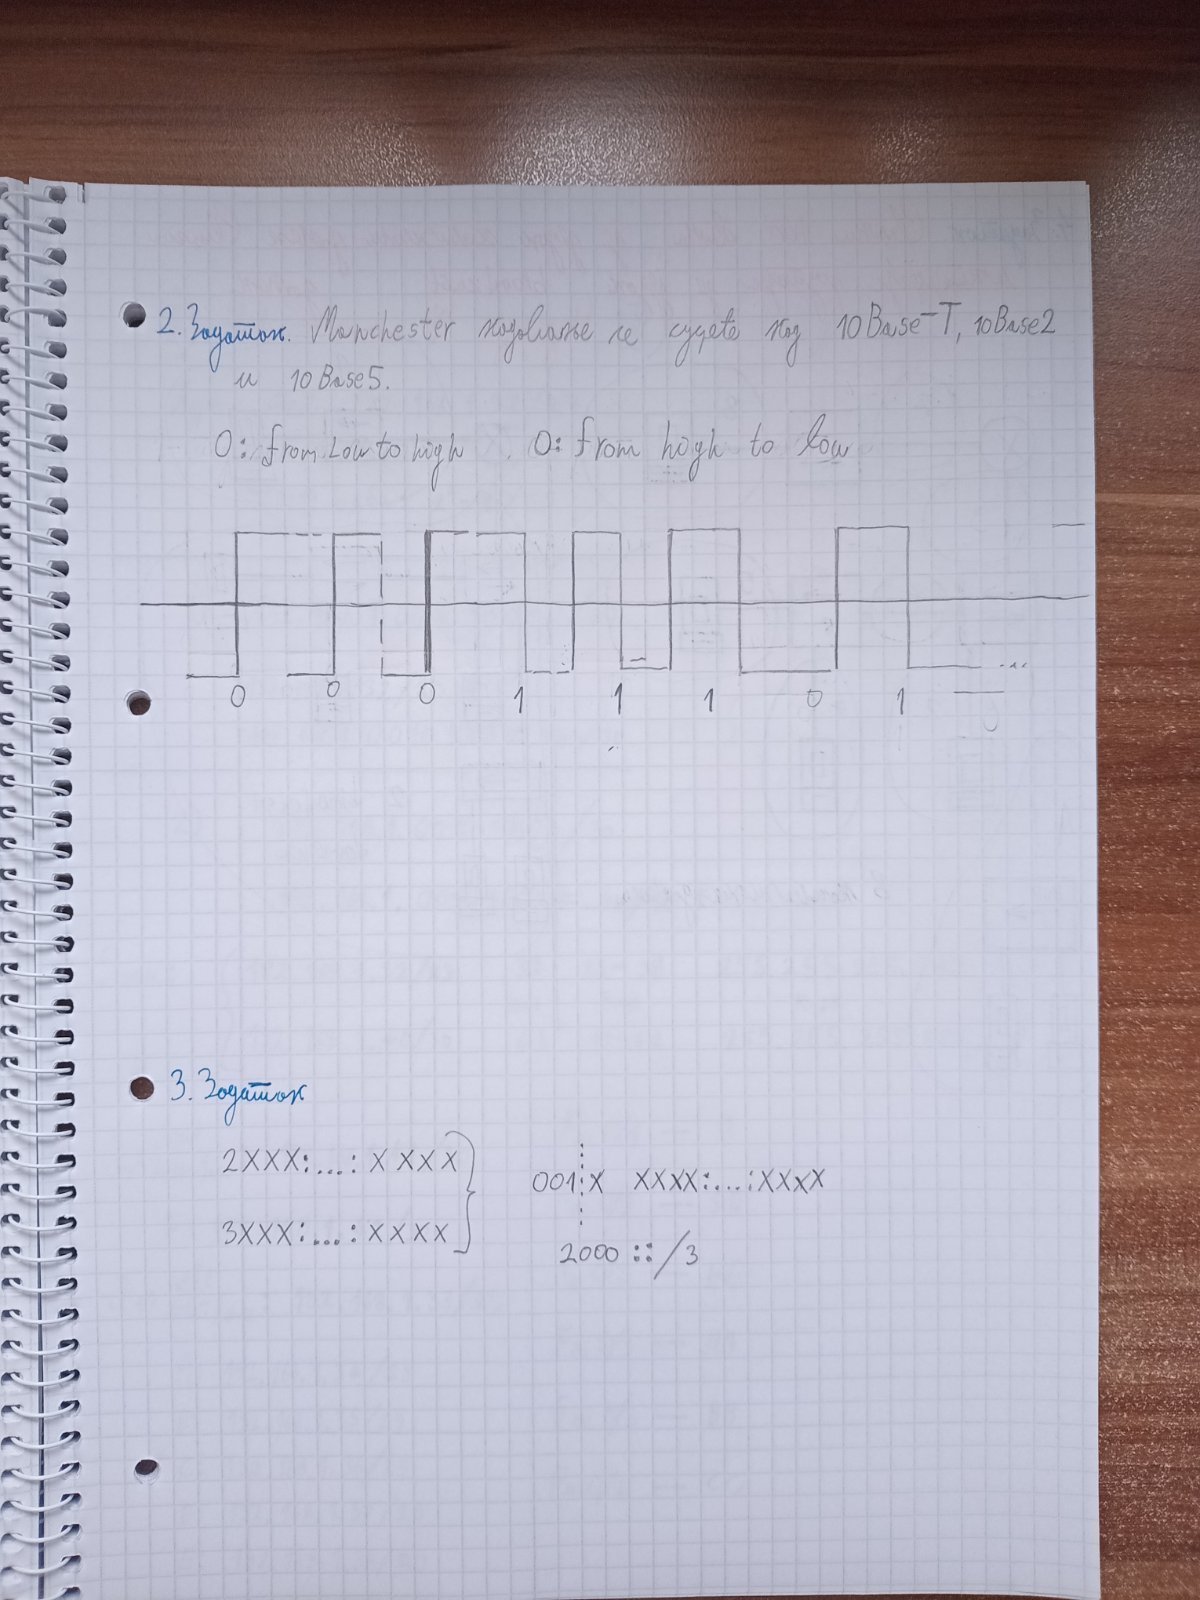 2. Задатак. Manchester кодовање се сусреће код 10Base-T, 10Base2
и 10Base5.
0: from Low to high 0: from high to low
0 0 0 1 1 1 0 1
3. Задатак
2XXX:...:XXXX
001 X XXXX:...:XXXX
3XXX:...:XXXX
2000::/3